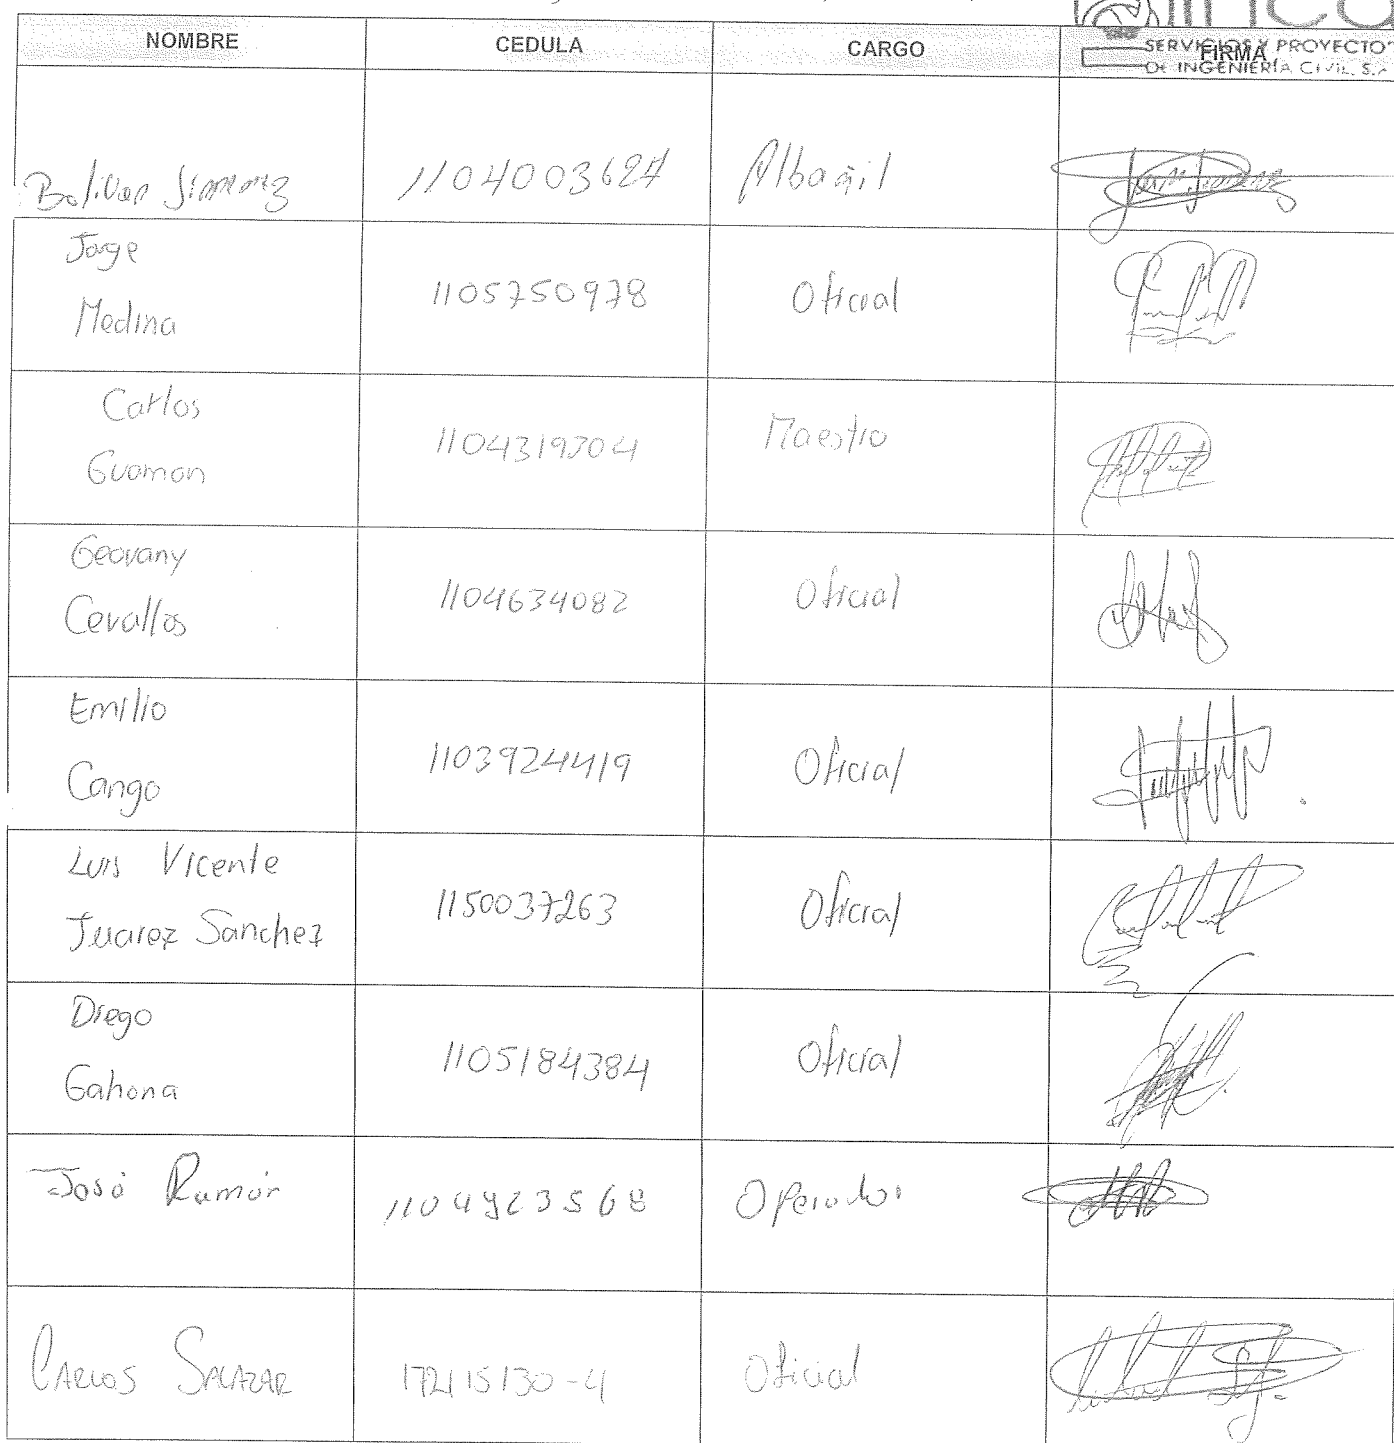 NOMBRE CEDULA CARGO FIRMA
SERVICIOS Y PROYECTO
DE INGENIERÍA CIVIL S.A
Bolivar Jimenez 1104003627 Albañil
Jorge
Medina
1105750978 Oficial
Carlos
Guaman
1104319304 Maestro
Geovany
Cevallos
1104634082 Oficial
Emilio
Cango
1103924419 Oficial
Luis Vicente
Juarez Sanchez
1150037263 Oficial
Diego
Gahona
1105184384 Oficial
José Ramón 1104923568 Operador
CARLOS SALAZAR 172115130-4 Oficial